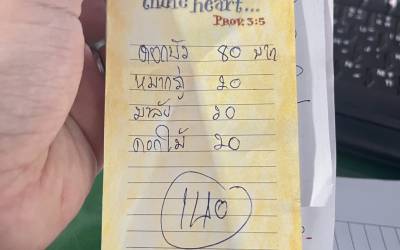 thine heart...
PROV. 3:5
ดอกบัว 80 บาท
หมากพู่ 20
มาลัย 20
ดอกไม้ 20
140